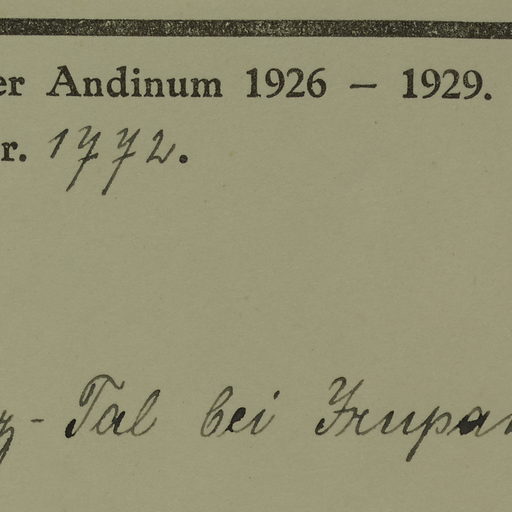 er Andinum 1926 – 1929.
r. 1772.
z-Tal bei Irupan